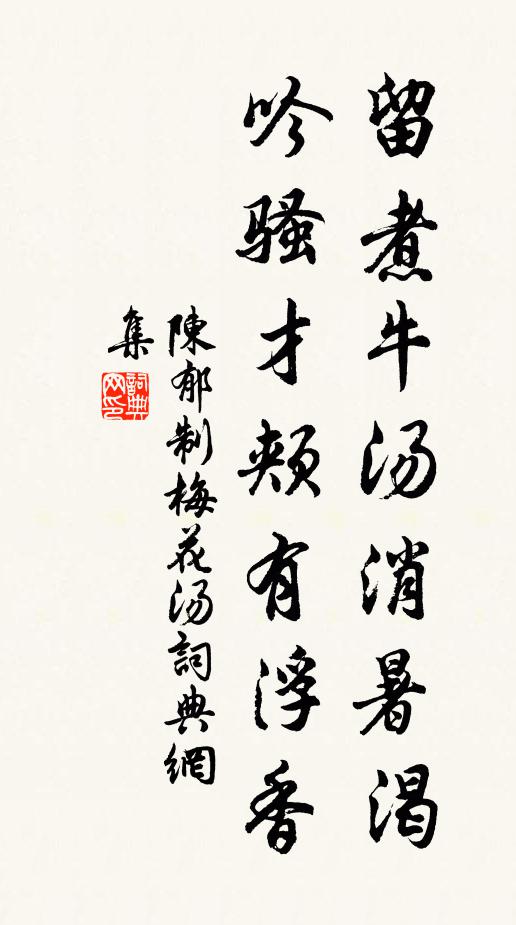 留煮牛汤消暑渴
吟骚才颊有浮香
陳郁制梅花汤詞典網
集
詞典
网印